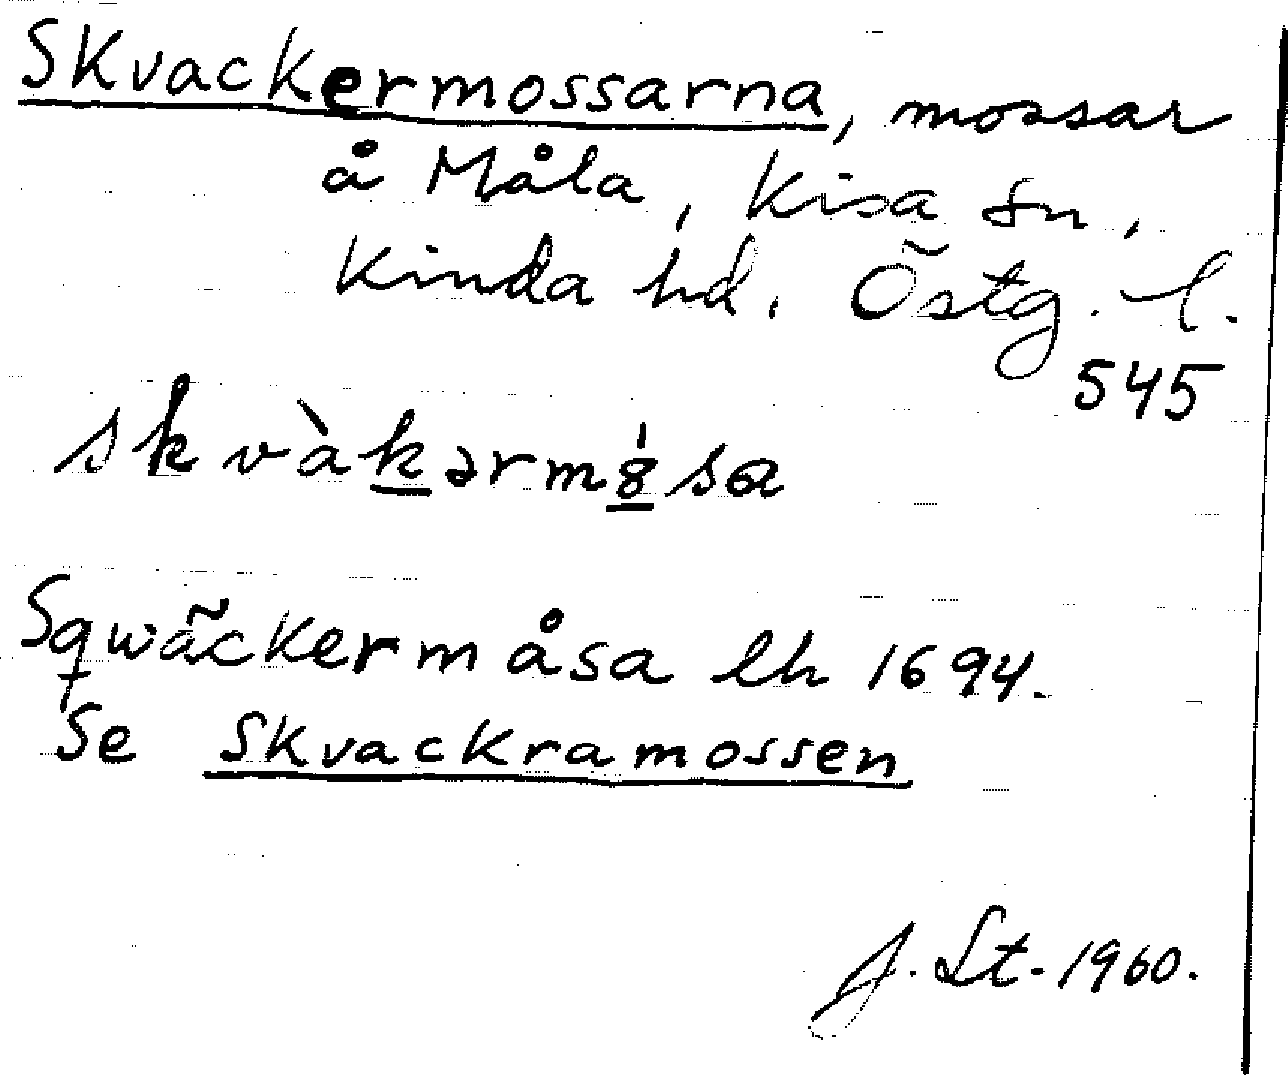 Skvackermossarna, mossar
å Måla, Kisa sn,
Kinda hd. Östg. l.
545
skvàkərmósa
Sqwäckermåsa lh 1694.
Se Skvackramossen
J. Lt. 1960.